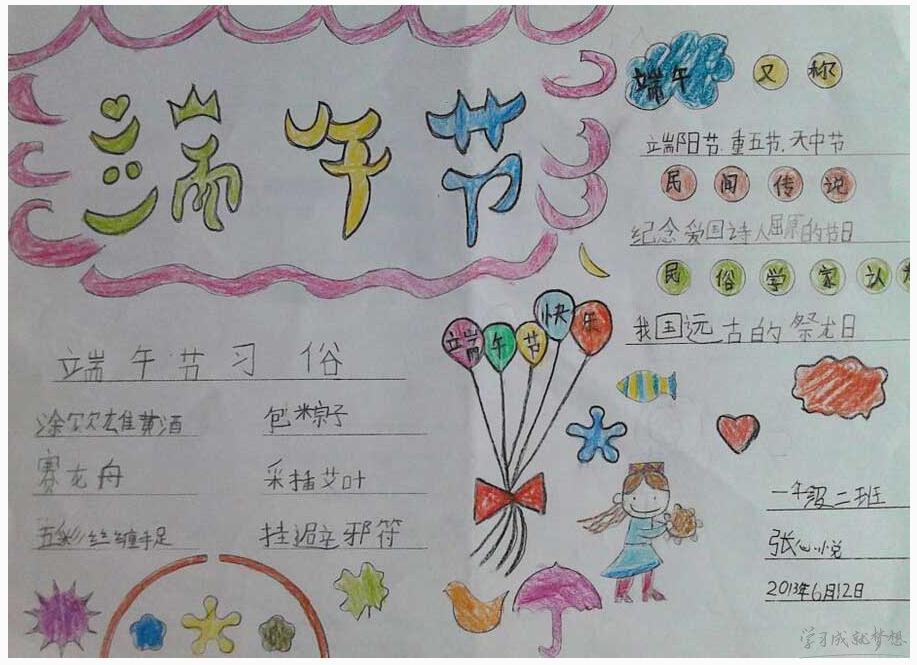 端午节
端午 又称
端阳日节.重五节.天中节
民间传说
纪念爱国诗人屈原的节日
民俗学家认为
我国远古的祭龙日
端午节快乐
端午节习俗
涂饮雄黄酒
包粽子
赛龙舟
采插艾叶
五彩丝缠手足
挂避邪符
一年级二班
张心悦
2013年6月12日
学习成就梦想